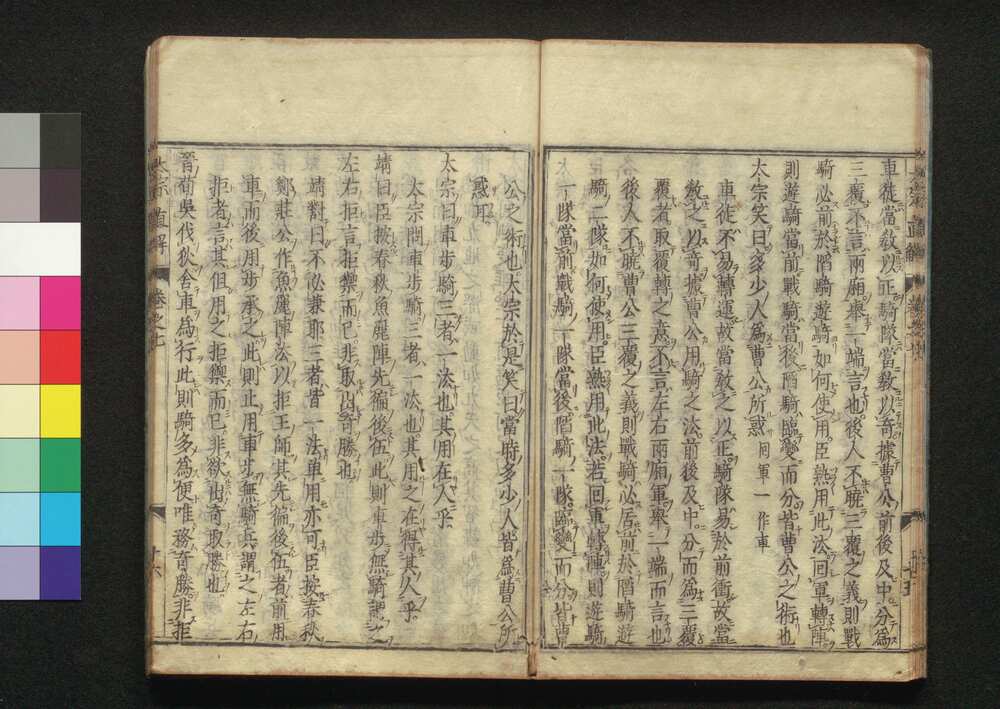 車徒當教以正騎隊當教以奇據曹公前後及中分爲
三覆不言兩廂舉一端言也後人不曉三覆之義則戰
騎必前於陷騎遊騎如何使用臣熟用此法回軍轉陣
則遊騎當前戰騎當後陷騎臨變而分皆曹公之術也
太宗笑曰多少人爲曹公所惑 回軍一作車
車徒不易轉運故當教之以正騎隊易於前衝故當
教之以奇據曹公用騎之法前後及中分而爲三覆
覆者取覆轉之意不言左右兩廂軍舉一端而言也
後人不曉曹公三覆之義則戰騎必居前於陷騎遊
騎二隊如何使用臣熟用此法若回軍轉陣則遊騎
一隊當前戰騎一隊當後陷騎一隊臨變而分皆曹
公之術也太宗於是笑曰當時多少人皆爲曹公所
惑耳
太宗曰車步騎三者一法也其用在人乎
太宗問車步騎三者一法也其用之在得其人乎
靖曰臣按春秋魚麗陣先偏後伍此則車步無騎謂之
左右拒言拒禦而已非取出奇勝也
靖對曰不必兼耶三者皆一法單用亦可臣按春秋
鄭莊公作魚麗陣法以拒王師其先偏後伍者前用
車而後用步承之此則止用車步無騎兵謂之左右
拒者言其但用之拒禦而已非欲出奇取勝也
晉荀吳伐狄舍車爲行此則騎多爲便唯務奇勝非拒
太宗 直解 卷之七 十六